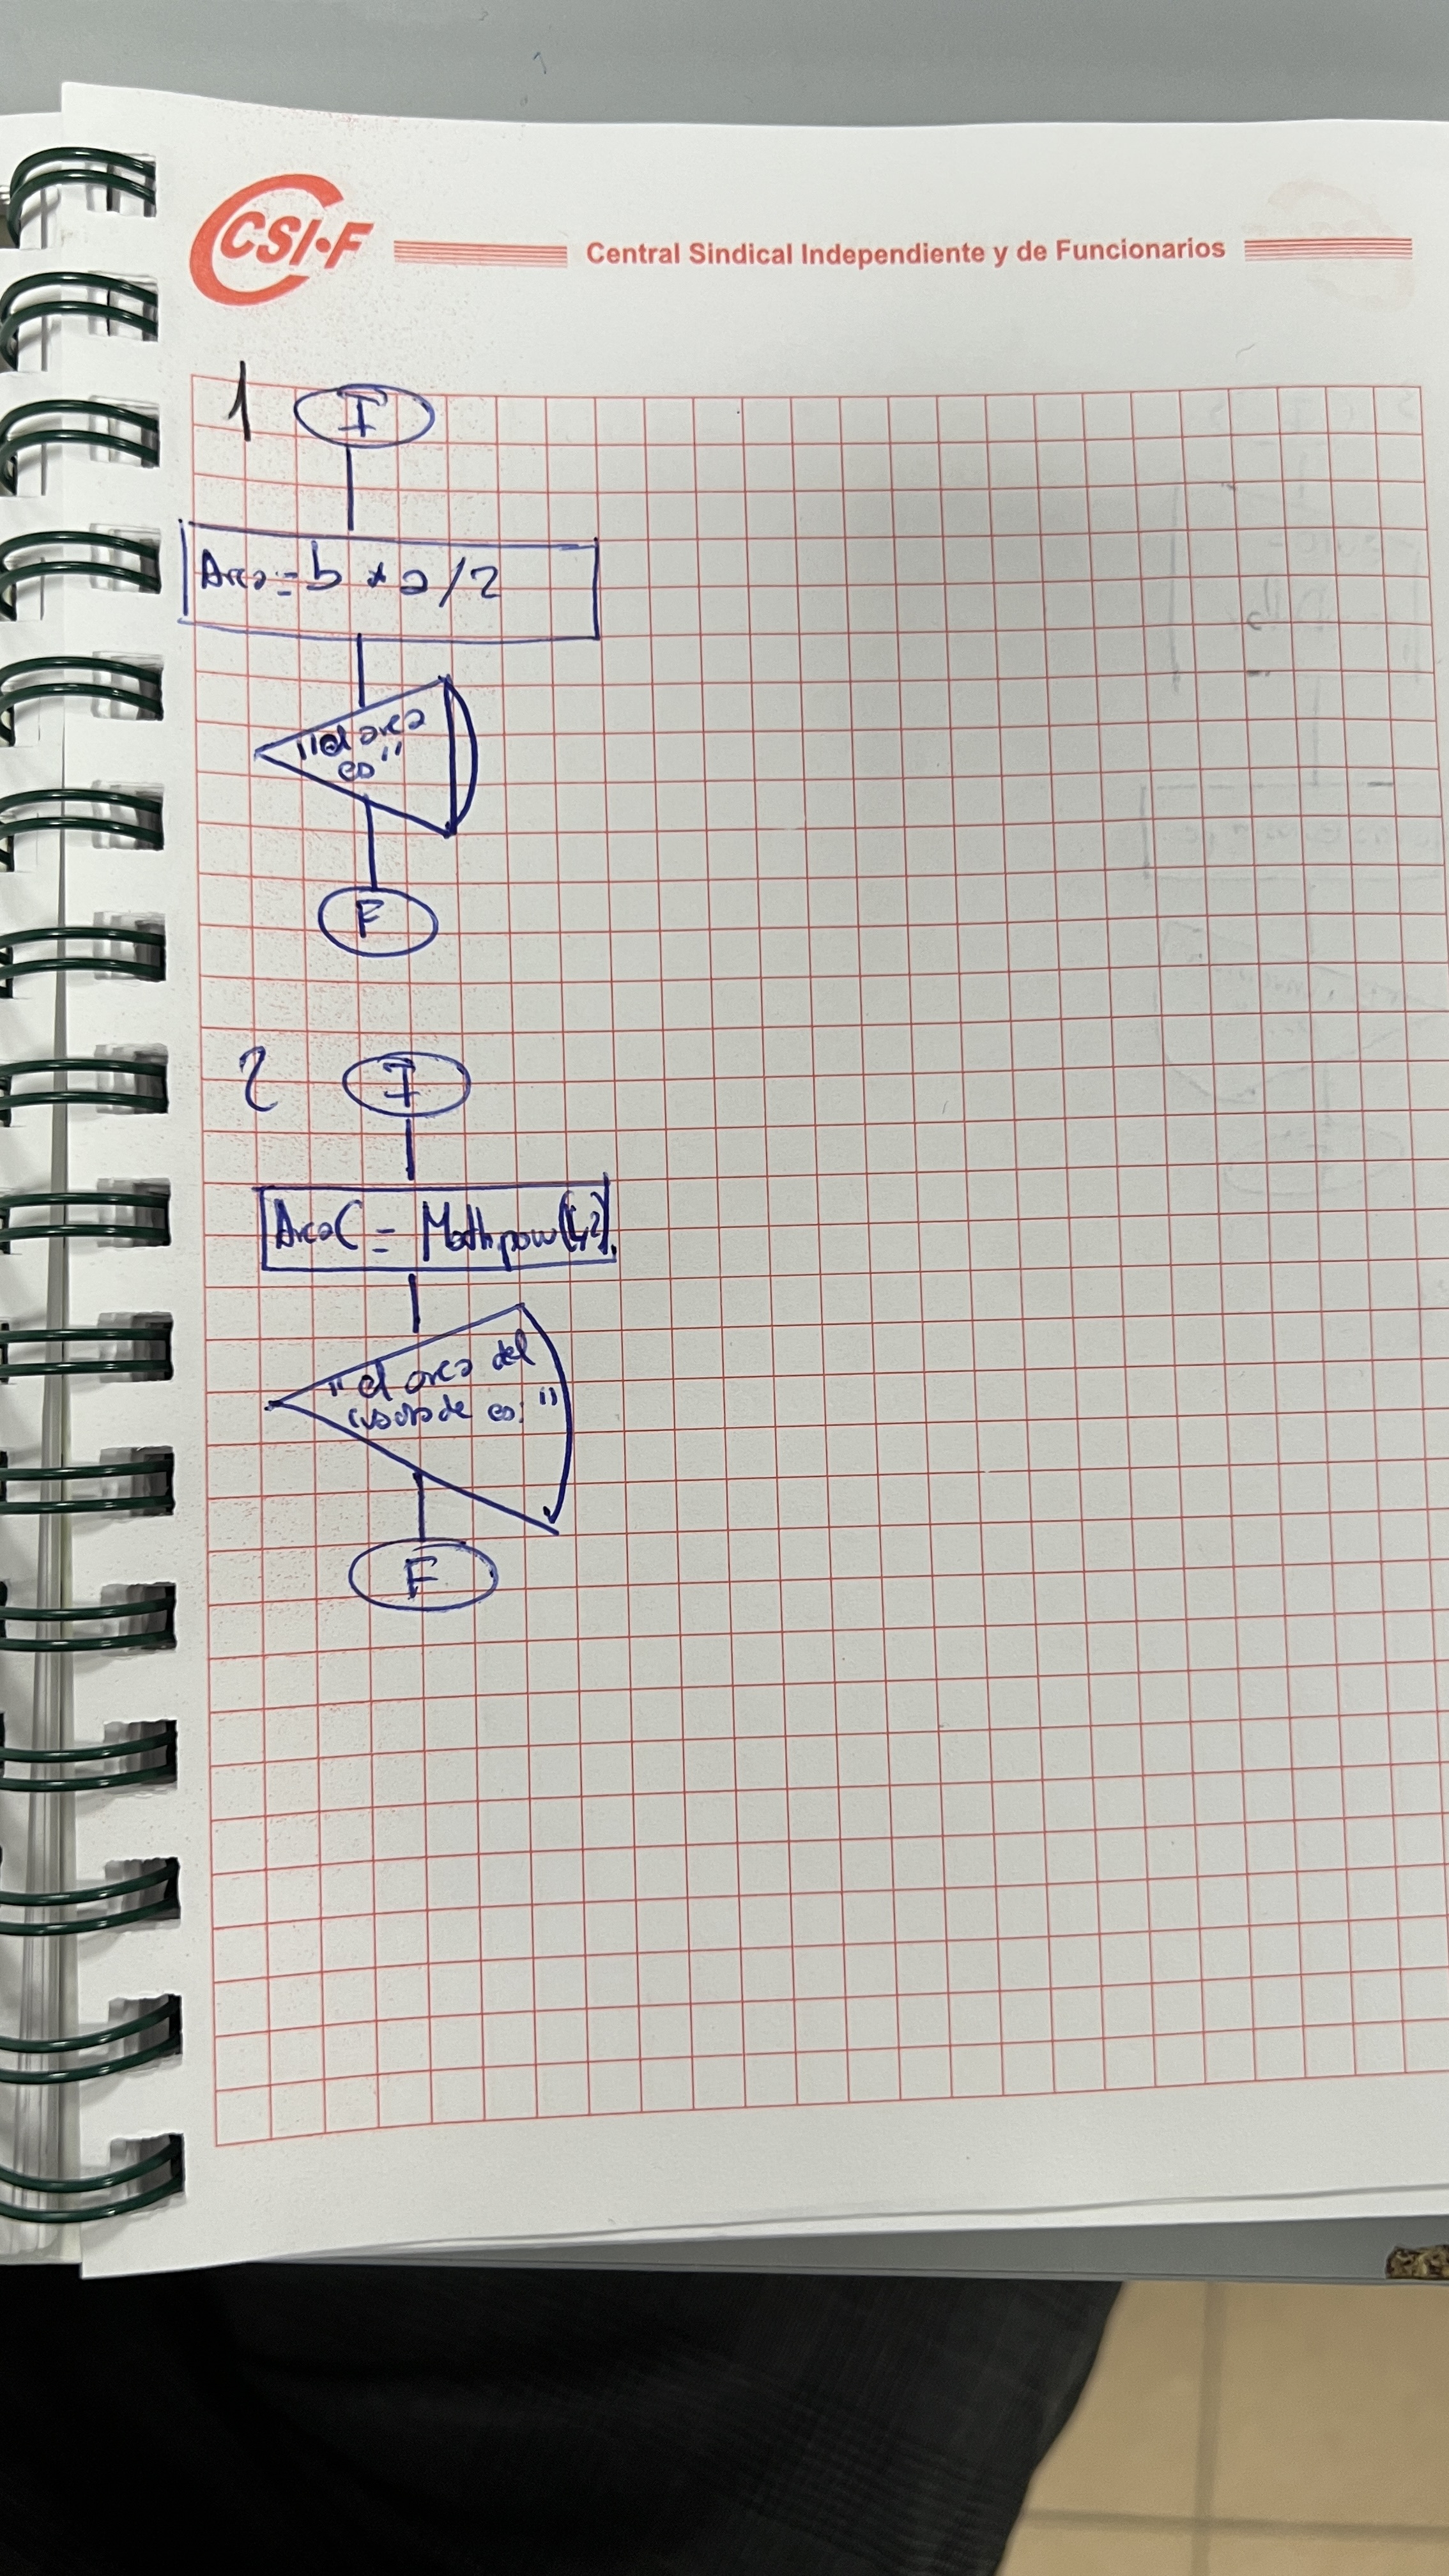 CSI·F
Central Sindical Independiente y de Funcionarios
1
I
Area = b * a / 2
"el area
es"
F
2
I
AreaC = Math.pow(L,2).
"el area del
es: "
F